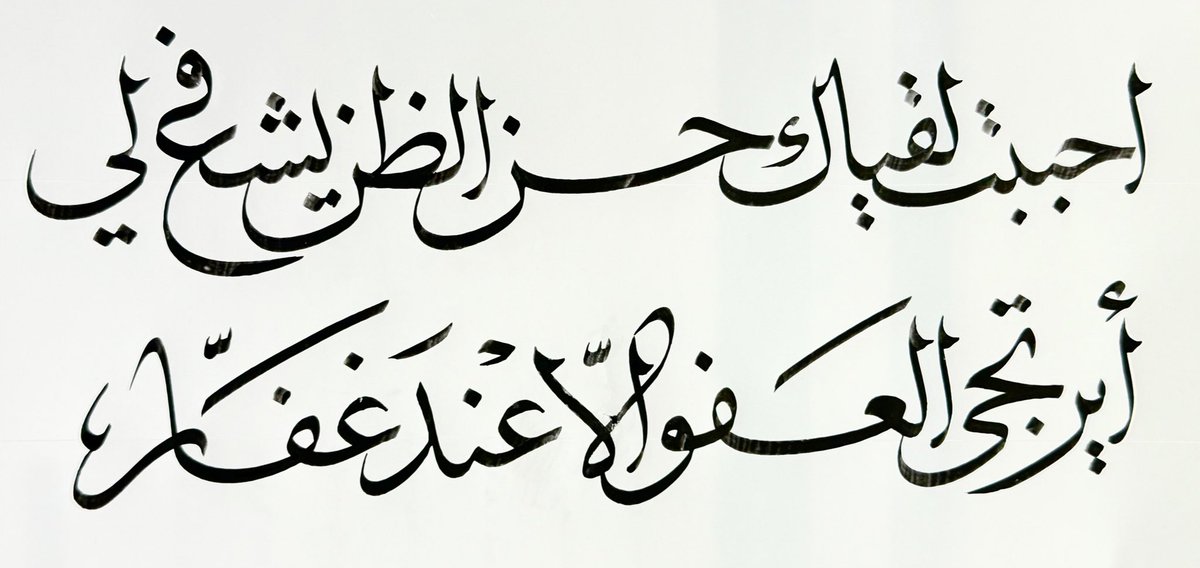 احببت لقياك حسن الظن يشفع لي
أيرتجى العفو الّا عنْدَ غفَّار